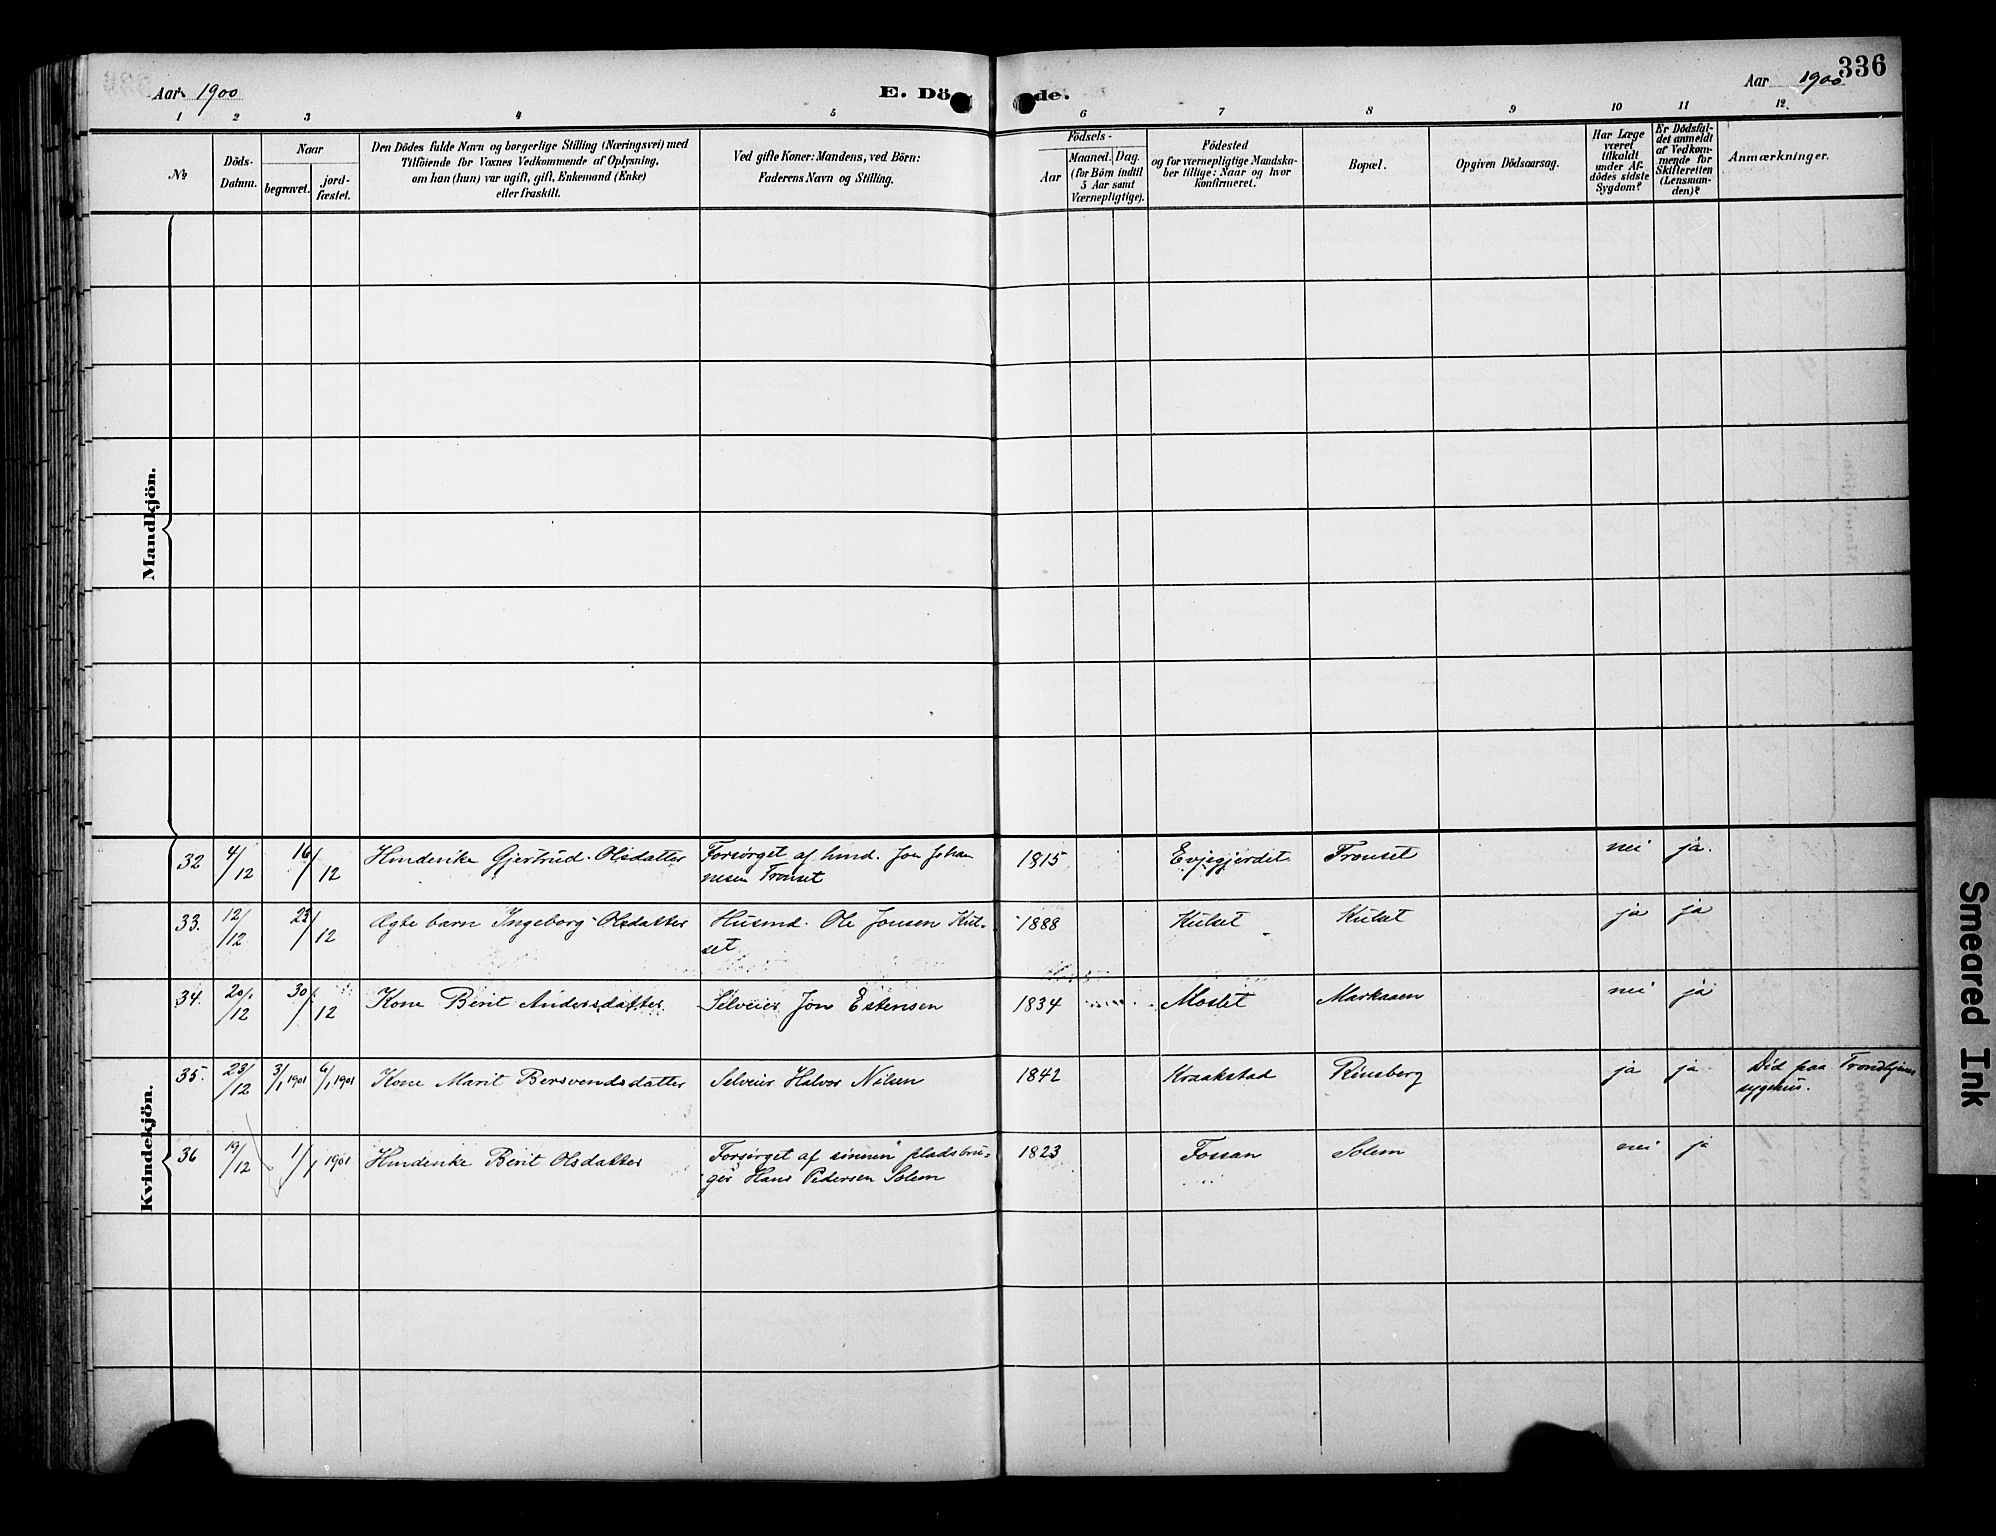 Aar 1900
E. Döde.
Aar 1900
336
1 2 3 4 5 6 7 8 9 10 11 12.
No
Döds-
Datum.
Naar
begravet.
jord-
fæstet.
Den Dödes fulde Navn og borgerlige Stilling (Næringsvei) med
Tilföiende for Voxnes Vedkommende af Oplysning,
om han (hun) var ugift, gift, Enkemand (Enke)
eller fraskilt.
Ved gifte Koner: Mandens, ved Börn:
Faderens Navn og Stilling.
Födsels-
Aar
Maaned. Dag.
(for Börn indtil
5 Aar samt
Værnepligtige).
Födested
og for værnepligtige Mandska-
ber tillige: Naar og hvor
konfirmeret.
Bopæl.
Opgiven Dödsaarsag.
Har Læge
været
tilkaldt
under Af-
dödes sidste
Sygdom?
Er Dödsfal-
det anmeldt
af Vedkom-
mende for
Skifteretten
(Lensman-
den)?
Anmærkninger.
Mandkjön.
Kvindekjön.
32 4/12 16/12 Huusenke Gjertrud Olsdatter Forsörget af husmd. Jon Johan
nesen Tronset 1815 Evjegjerdet Tronset nei ja.
33. 12/12 23/12 Ægte barn Ingeborg Olsdatter Husmd. Ole Jonsen Kul-
set 1888 Kulset Kulset ja ja
34. 20/12 30/12 Kone Berit Andersdatter Selveier Jon Estensen 1834 Moslet Markaaen nei ja
35. 23/12 3/1 1901 6/1 1901 Kone Marit Bersvendsdatter Selveier Halvor Nilsen 1842 Kraakstad Rensberg ja ja Död paa Trondhjems
sygehus.
36 19/12 1/1 1901 Huusenke Berit Olsdatter Forsörget af sönnen pladsbru-
ger Hans Pedersen Solem 1823 Fossan Solem nei ja
Smeared Ink